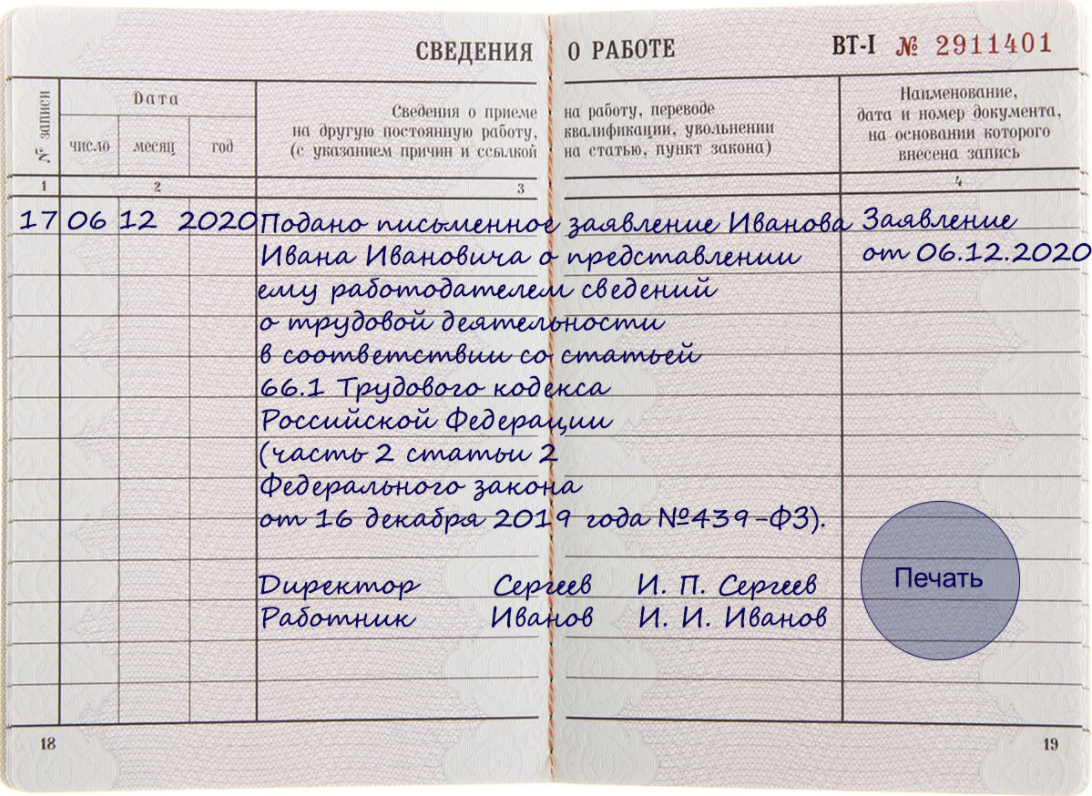 СВЕДЕНИЯ О РАБОТЕ ВТ-I № 2911401
№ записи
Дата
число месяц год
Сведения о приеме на работу, переводе
на другую постоянную работу, квалификации, увольнении
(с указанием причин и ссылкой на статью, пункт закона)
Наименование,
дата и номер документа,
на основании которого
внесена запись
1 2 3 4
17 06 12 2020 Подано письменное заявление Иванова Заявление
Ивана Ивановича о представлении от 06.12.2020
ему работодателем сведений
о трудовой деятельности
в соответствии со статьей
66.1 Трудового кодекса
Российской Федерации
(часть 2 статьи 2
Федерального закона
от 16 декабря 2019 года №439-ФЗ).
Печать
Директор Сергеев И. П. Сергеев
Работник Иванов И. И. Иванов
18 19